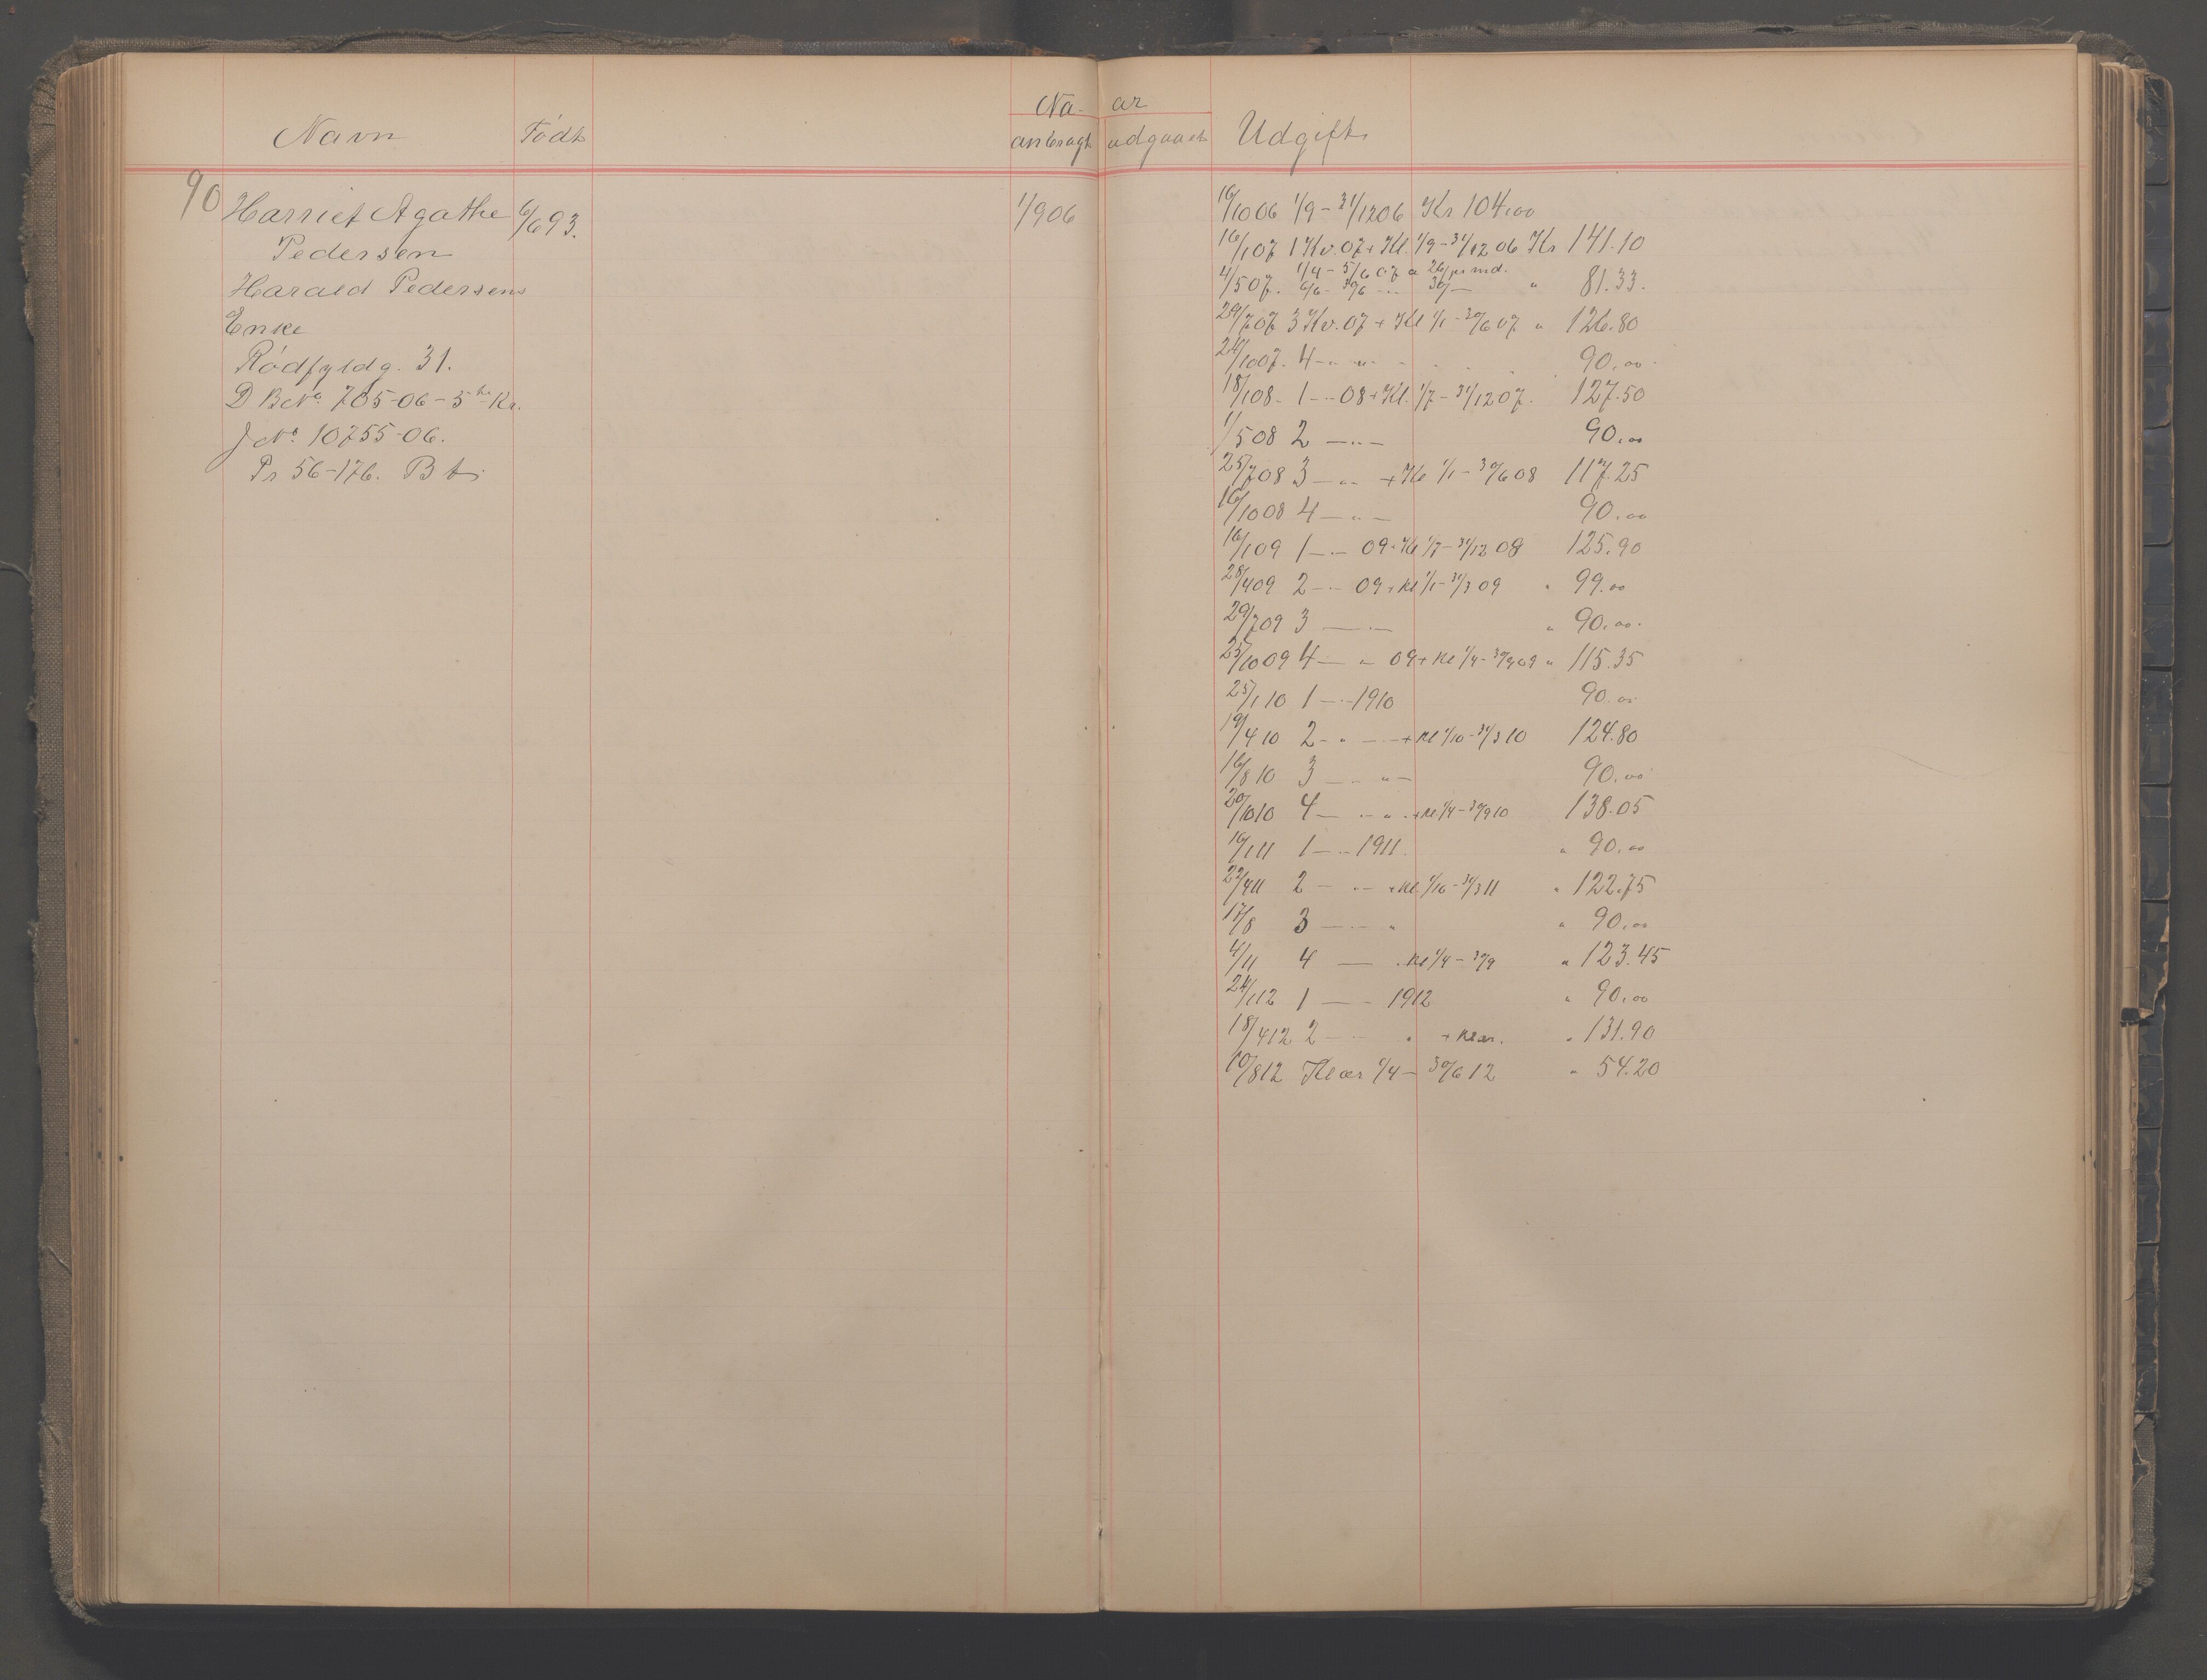 Na- ar
Navn Født anbragt udgaaet Udgift
90 Harriet Agathe 6/6 93. 1/9 06
Pedersen
Harald Pedersens
Enke
Rødfyldg. 31.
D B No. 705-06-5te Kr.
J No. 10755-06.
Pr 56-176. B
16/10 06 1/9 - 31/12 06 Kr 104,00
16/1 07 1 Kv. 07 + Kl. 1/9 - 31/12 06 Kr 141.10
1/4 - 5/6 07 a 26/pr md.
4/5 07. 6/6 - 30/6 -"- 30/- " 81.33.
29/7 07 3 Kv. 07 + Kl 1/1 - 30/6 07 " 126.80
24/10 07. 4 -"- " 90.00
18/1 08 - 1 -"- 08 + Kl. 1/7 - 31/12 07. 127.50
1/5 08 2 -"- 90.00
25/7 08 3 -"- + Kl 1/1 - 30/6 08 117.25
16/10 08 4 -"- 90.00
16/1 09 1 -"- 09 + Kl 1/7 - 31/12 08 125.90
28/4 09 2 -"- 09 + Kl 1/1 - 31/3 09 " 99.00
29/7 09 3 -"- " 90.00.
25/10 09 4 - " 09 + Kl 1/4 - 30/9 09 " 115.35
25/1 10 1 -"- 1910 90.00
19/4 10 2 - " - + Kl 1/10 - 31/3 10 124.80
16/8 10 3 -"- " - 90.00
20/10 10 4 - -"- " + Kl 1/4 - 30/9 10 138.05
16/1 11 1 -"- 1911. " 90.00
22/4 11 2 - "- + Kl. 1/10 - 31/3 11 " 122.75
17/8 3 -"- " " 90.00
4/11 4 - + Kl 1/4 - 30/9 " 123.45
24/1 12 1 -"- 1912 " 90.00
18/4 12 2 -"- " + Klær. " 131.90
10/8 12 Klær 1/4 - 30/6 12 " 54.20